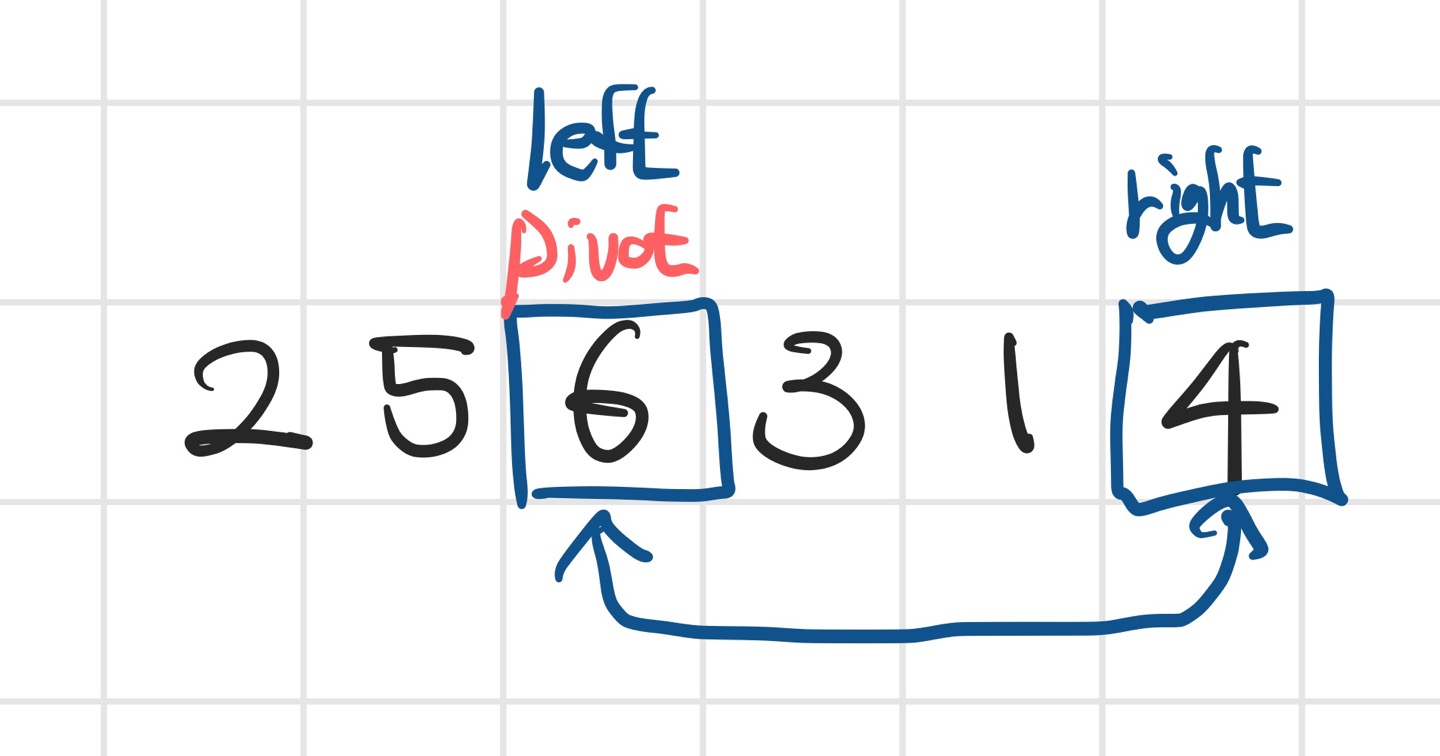 left
pivot
right
2 5 6 3 1 4